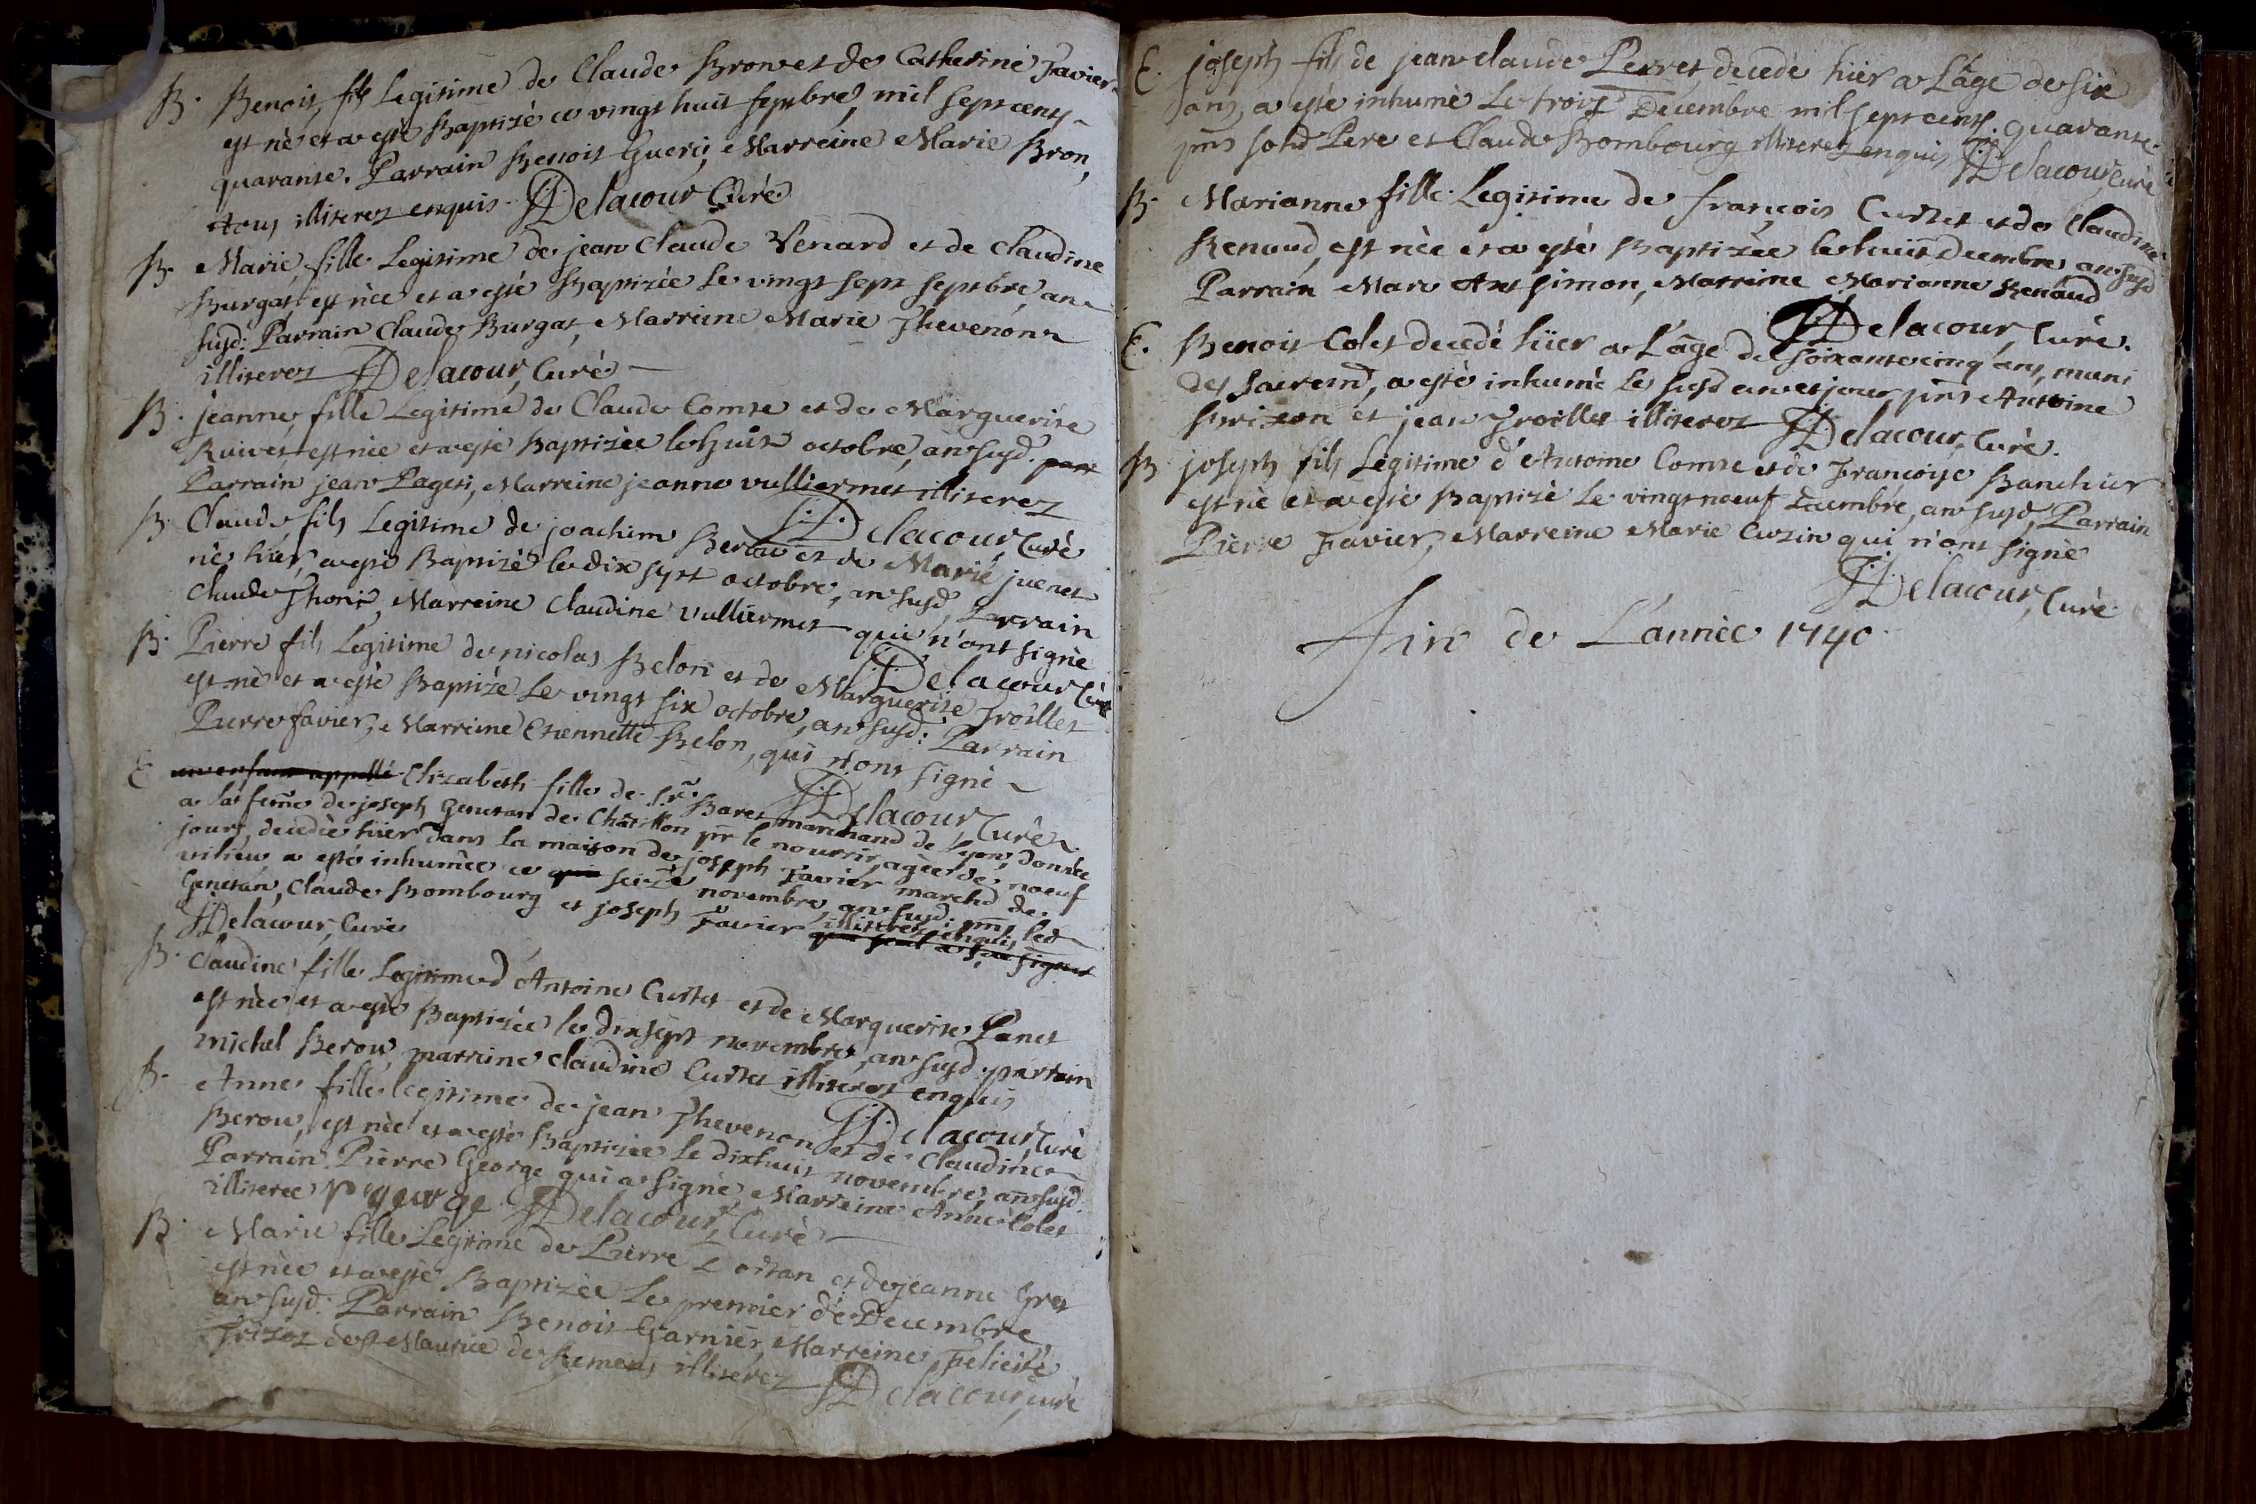 B. Benoit, fils Legitime de Claude Bron et de Catherine Favier
est né et a esté Baptizé ce vingt huit septbre, mil sept cents
quarante. Parrain Benoit Guery, Marreine Marie Bron,
tous illiterez enquis. Delacour Curé
B. Marie, fille Legitime de jean Claude Venard et de Claudine
Burgat, est née et a esté Baptizée le vingt sept septbre, an
susd: Parrain Claude Burgat, Marreine Marie Thevenon
illiterez Delacour, Curé
B. jeanne, fille Legitime de Claude Comte et de Marguerite
Ruivet est née et a esté Baptizée le huit octobre, an susd. par
Parrain jean Pageti, Marreine jeanne vulliermet illiterez
Delacour, Curé
B. Claude, fils Legitime de joachim et de Marie juenet
né hier, a esté Baptizé le dix sept octobre, an susd, Parrain
Claude Marreine Claudine vulliermet qui n'ont signé
Delacour Curé
B. Pierre fils Legitime de nicolas Belon et de Marguerite Troillet
est né et a esté Baptizé Le vingt six octobre, an susd: Parrain
Pierre favier, Marreine Etiennette Belon, qui n'ont signé
Delacour, Curé
E un enfant appellé Elizabeth fille de Sr. Baret marchand de Lyon, donnée
a la feme de joseph Genetan de Châtillon pr le nourrir, agée de noeuf
jours, decedée hier dans la maison de joseph Favier marchd de
vilieu a esté inhumée ce seize novembre, an susd: led
Genetan, Claude Bombourg et joseph Favier illiterez enquis
Delacour, Curé
B. Claudine fille Legitime d'Antoine Curtet et de Marguerite Panet
est née et a esté Baptizée le dix sept novembre, an susd. parrain
michel Berou, marreine Claudine Curtet illiterez enquis
Delacour, Curé
B. Anne fille legitime de jean Thevenon et de Claudine
Berou, est née et a esté Baptizée le dixhuit novembre, an susd.
Parrain Pierre George qui a signé, Marreine Anne Colet
illiteree P george Delacour, Curé
B. Marie fille Legitime de Pierre et de jeanne
est née et a esté Baptizée Le premier de Decembre
an susd. Parrain Benoit Garnier, Marreine Felicité
de St Maurice de Remens illiterez
Delacour, curé
E. joseph fils de jean claude Perret, decedé hier a L'âge de six
ans, a esté inhumé Le trois Decembre mil sept cents quarante.
pnts sond Pere et Claude Bombourg illiterez enquis Delacour, Curé
B. Marianne fille Legitime de françois Curtet et de Claudine
Renaud, est née et a esté Baptizée le huit Decembre, an susd
Parrain Marc Ant simon, Marreine Marianne Renaud
Delacour, Curé.
E. Benoit Colet decedé hier a L'âge de soixante cinq ans, muni
des sacremts, a esté inhumé le susd an et jour, pnts Antoine
et jean Troillet illiterez Delacour, Curé.
B joseph fils Legitime d'Antoine Comte et de Françoise
est né et a esté Baptizé Le vingt noeuf Decembre, an susd, Parrain
Pierre Favier, Marreine Marie Cuzin qui n'ont signé
Delacour, Curé.
Fin de L'année 1740